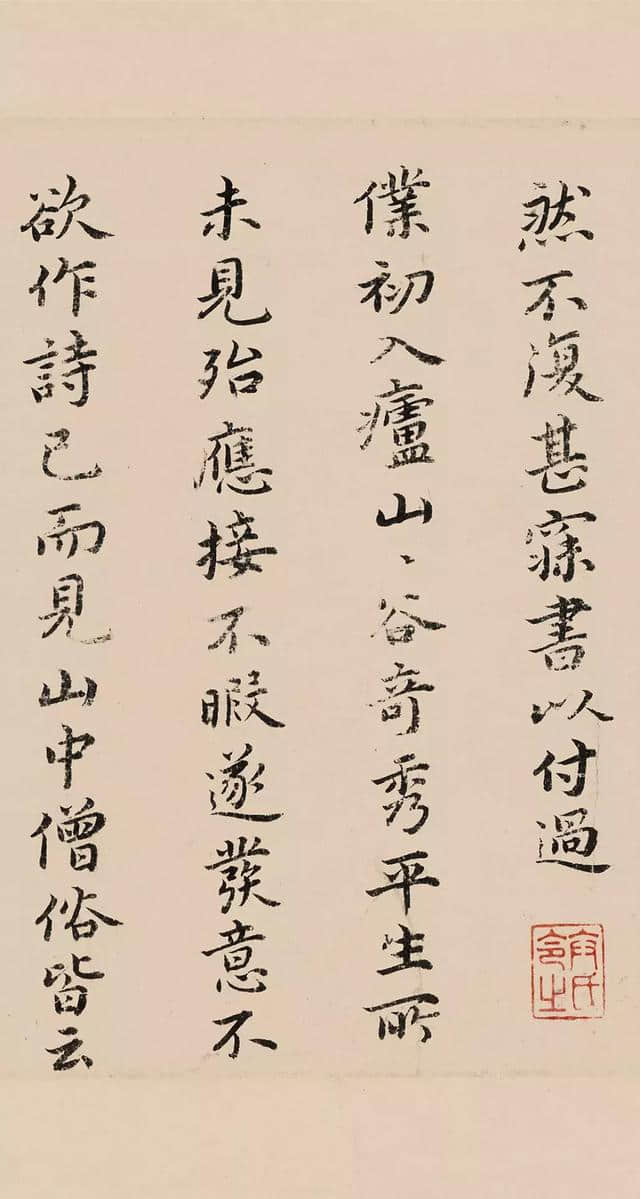 然不復甚寐書以付過
僕初入廬山〻谷竒秀平生所
未見殆應接不暇遂發意不
欲作詩已而見山中僧俗皆云